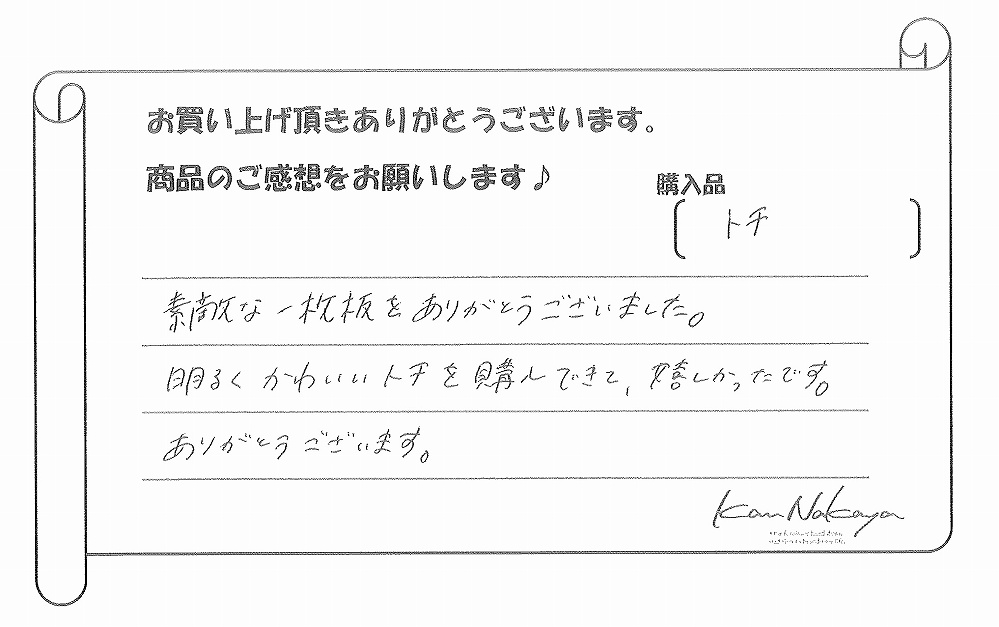 お買い上げ頂きありがとうございます。
商品のご感想をお願いします♪
購入品
トチ
素敵な一枚板をありがとうございました。
明るくかわいいトチを購入できて、嬉しかったです。
ありがとうございます。
Kan Nakaya